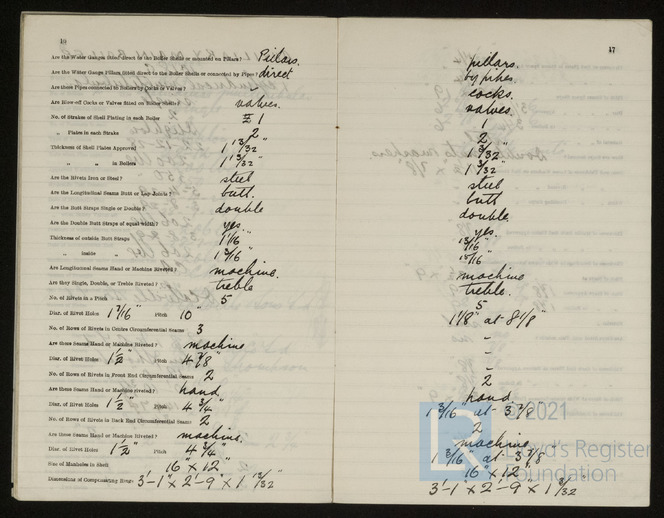 49
Are the Water Gauges fitted direct to the Boiler Shells or mounted on Pillars? Pillars.
Are the Water Gauge Pillars fitted direct to the Boiler Shells or connected by Pipes? direct
Are these Pipes connected to Boilers by Cocks or Valves? -
Are Blow-off Cocks or Valves fitted on Boiler Shells? valves.
No. of Strakes of Shell Plating in each Boiler 1
„ Plates in each Strake 2
Thickness of Shell Plates Approved 1 13/32"
„ „ in Boilers 1 13/32"
Are the Rivets Iron or Steel? steel
Are the Longitudinal Seams Butt or Lap Joints? butt.
Are the Butt Straps Single or Double? double
Are the Double Butt Straps of equal width? yes.
Thickness of outside Butt Straps 1 1/16"
„ inside „ 1 3/16"
Are Longitudinal Seams Hand or Machine Riveted? machine.
Are they Single, Double, or Treble Riveted? treble
No. of Rivets in a Pitch 5
Diar. of Rivet Holes 1 7/16" Pitch 10"
No. of Rows of Rivets in Centre Circumferential Seams 3
Are these Seams Hand or Machine Riveted? machine
Diar. of Rivet Holes 1 1/2" Pitch 4 7/8"
No. of Rows of Rivets in Front End Circumferential Seams 2
Are these Seams Hand or Machine riveted? hand
Diar. of Rivet Holes 1 1/2" Pitch 4 3/4"
No. of Rows of Rivets in Back End Circumferential Seams 2
Are these Seams Hand or Machine Riveted? machine.
Diar. of Rivet Holes 1 1/2" Pitch 4 3/4"
Size of Manholes in Shell 16" x 12"
Dimensions of Compensating Rings 3'-1" x 2'-9" x 1 13/32"
47
pillars.
by pipes.
cocks.
valves.
1
2
1 3/32"
1 3/32
steel
butt
double
yes.
15/16"
15/16"
machine
treble.
5
1 1/8" at 8 1/8"
-
-
-
2
hand
1 3/16 at 3 7/8"
2
machine
1 3/16" at 3 7/8
16" x 12"
3'-1" x 2'-9" x 1 3/32"
© 2021
Lloyd's Register
Foundation